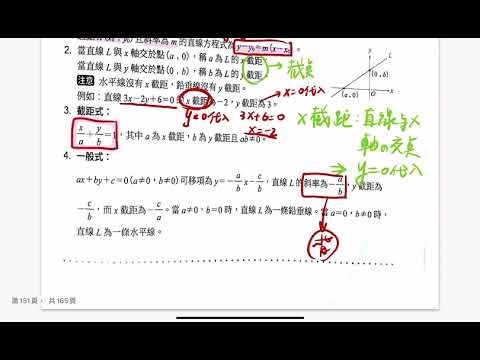 斜率為m的直線方程式為y−y₀=m(x−x₀
2. 當直線 L 與 x 軸交於點(a , 0)，稱 a 為 L 的 x 截距
當直線 L 與 y 軸交於點(0 , b)，稱 b 為 L 的 y 截距
注意 水平線沒有 x 截距，鉛垂線沒有 y 截距。
例如：直線 3x−2y+6=0 的 x 截距為−2，y 截距為 3。
y=0代入 3x+6=0
x=-2
x=0代入
截負
L
y
(0,b)
(a,0)
O
x
x截距:直線與x
軸的交負
⇒ y=0代入
3. 截距式：
x/a + y/b = 1，其中 a 為 x 截距，b 為 y 截距且 ab≠0。
4. 一般式：
ax+by+c=0 (a≠0 , b≠0) 可移項為 y=−a/b x−c/b，直線 L 的斜率為−a/b，y 截距為
−c/b，而 x 截距為−c/a。當 a≠0，b=0 時，直線 L 為一條鉛垂線。當 a=0，b≠0 時，
直線 L 為一條水平線。
第151頁， 共165頁